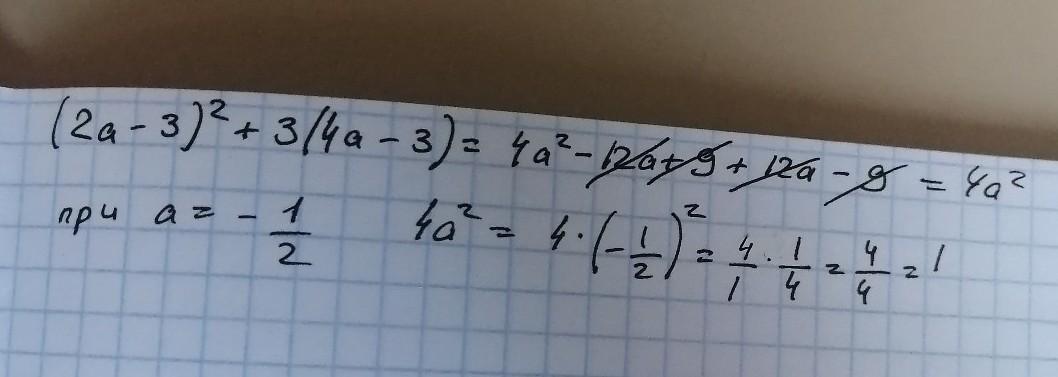 (2a - 3)² + 3(4a - 3) = 4a² - 12a + 9 + 12a - 9 = 4a²
при a = - 1/2   4a² = 4 · (- 1/2)² = 4/1 · 1/4 = 4/4 = 1